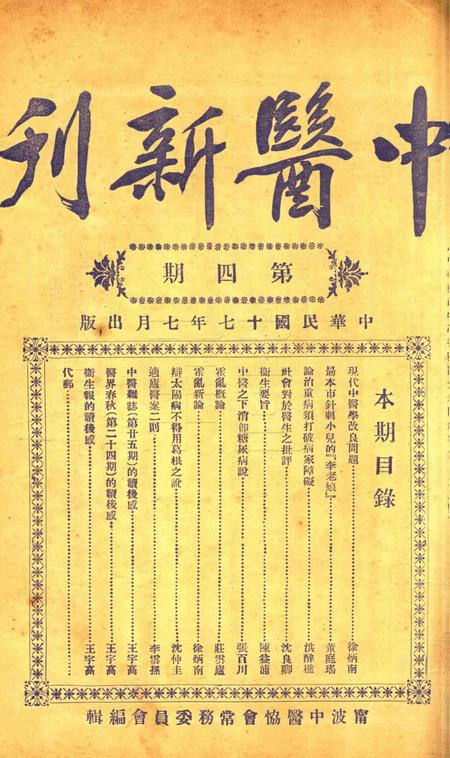 中醫新刊
第四期
中華民國十七年七月出版
本期目錄
現代中醫學改良問題 徐炳南
勗本市針刺小兒的『李老娘』 董庭瑤
論治重病須打破病家障礙 洪醉樵
社會對於醫生之批評 沈良卿
衞生要旨 陳益浦
中醫之下消卽糖尿病說 張百川
霍亂概論 莊雲廬
霍亂新論 徐炳南
辯太陽病不得用葛根之說 沈仲圭
適廬醫案二則 李雲孫
中醫雜誌(第廿五期)的讀後感 王宇高
醫界春秋(第二十四期)的讀後感 王宇高
衞生報的讀後感 王宇高
代郵
甯波中醫恊會常務委員會編輯